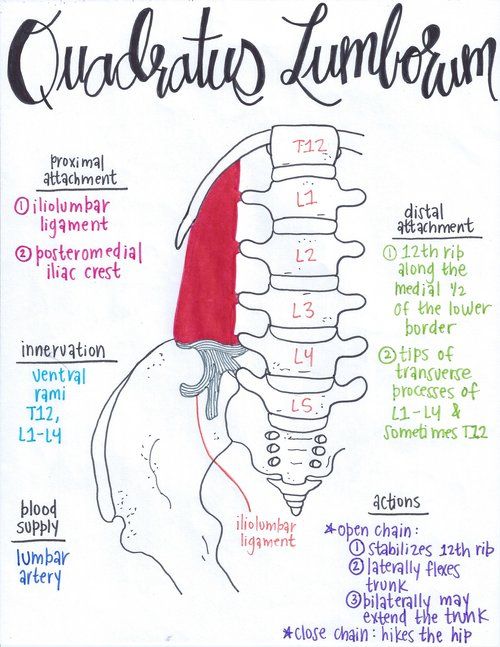 Quadratus Lumborum
proximal
attachment
① iliolumbar
ligament
② posteromedial
iliac crest
innervation
ventral
rami
T12,
L1-L4
blood
supply
lumbar
artery
T12
L1
L2
L3
L4
L5
iliolumbar
ligament
distal
attachment
① 12th rib
along the
medial 1/2
of the lower
border
② tips of
transverse
processes of
L1-L4 &
sometimes T12
actions
*open chain:
① stabilizes 12th rib
② laterally flexes
trunk
③ bilaterally may
extend the trunk
*close chain: hikes the hip